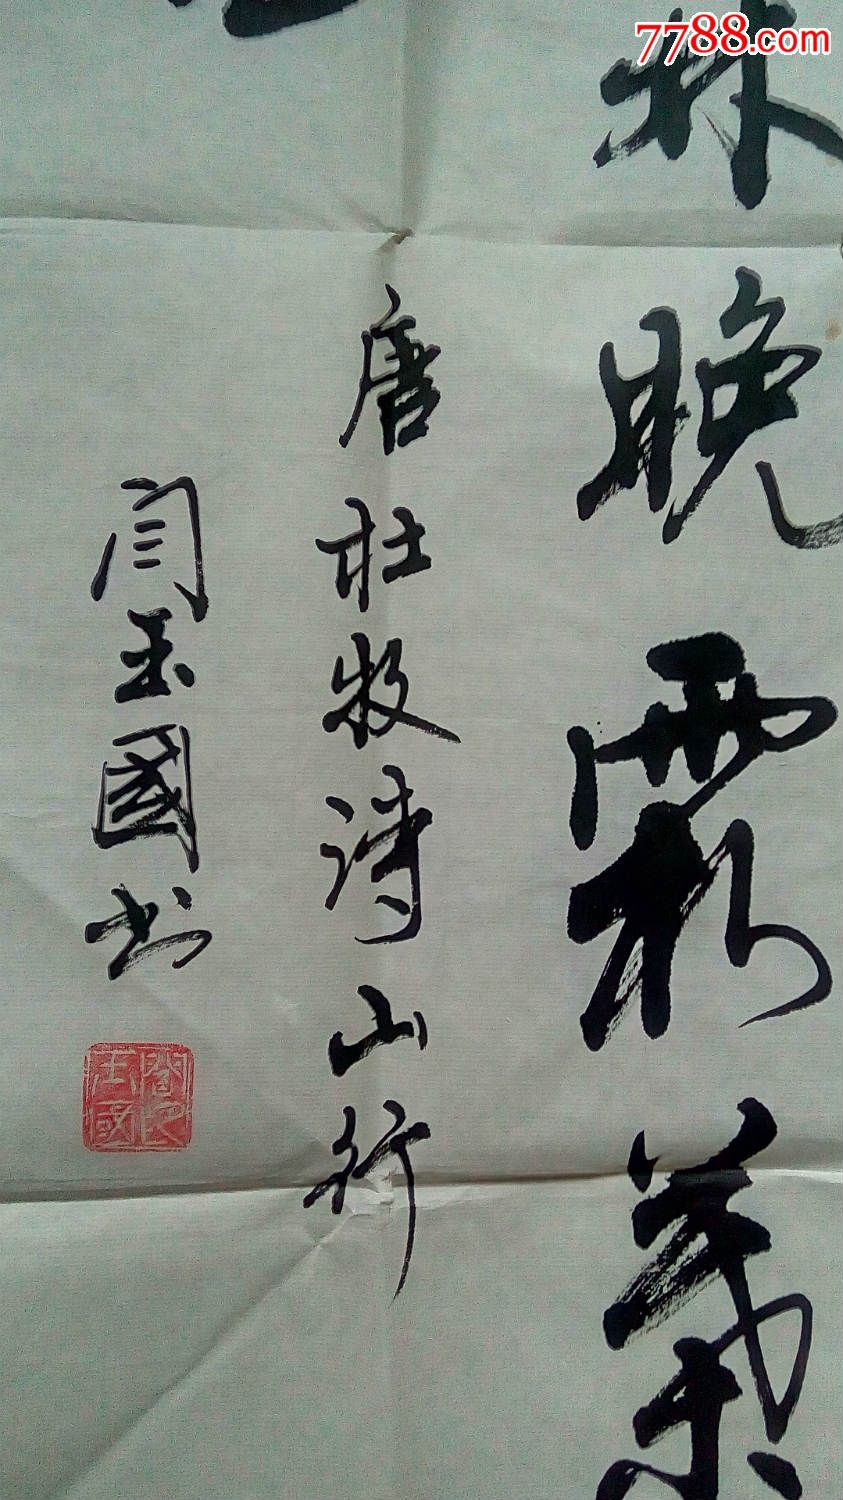 7788.com
林晚霜葉
唐杜牧诗山行
闫玉國书
閻玉國印